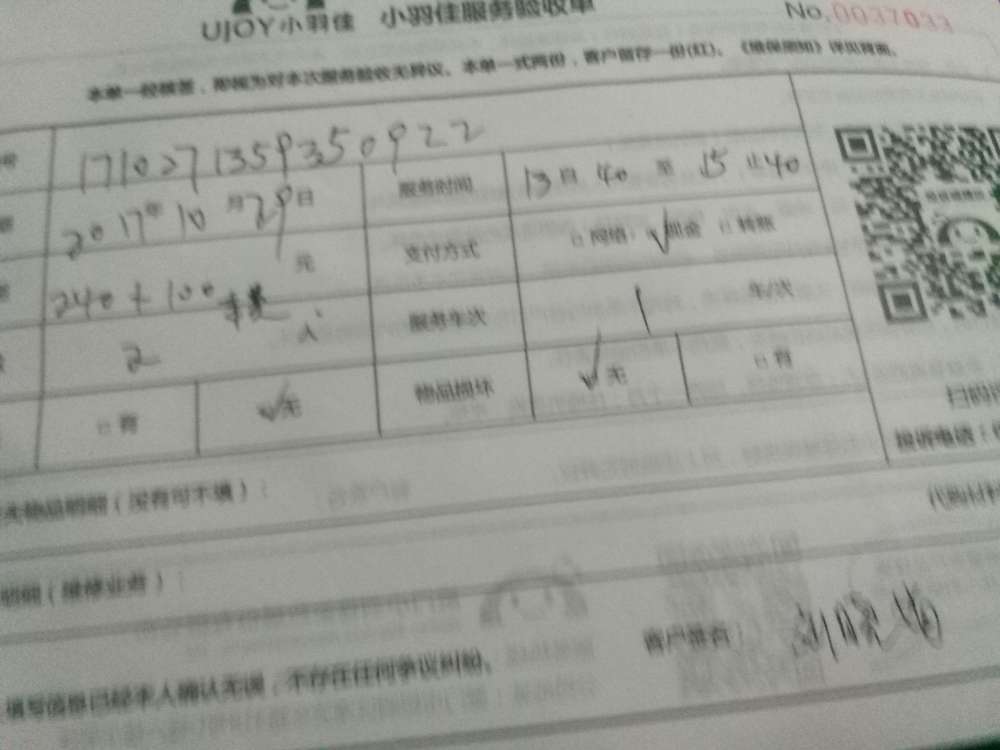 UJOY小羽佳 小羽佳服务验收单
No.0037033
本单一经签署,即视为对本次服务验收无异议。本单一式两份,客户留存一份(红)。《维保须知》详见背面。
1710271359350922
2017年10月29日 服务时间 13时40至15止40
240+100 元 支付方式 网络 √现金 转账
2 人 服务车次 1 车/次
有 √无 物品损坏 √无 有
扫码
投诉电话:
物品明细(没有可不填):
代购材料
明细(维修业者):
填写信息已经本人确认无误,不存在任何争议纠纷。
客户签名: